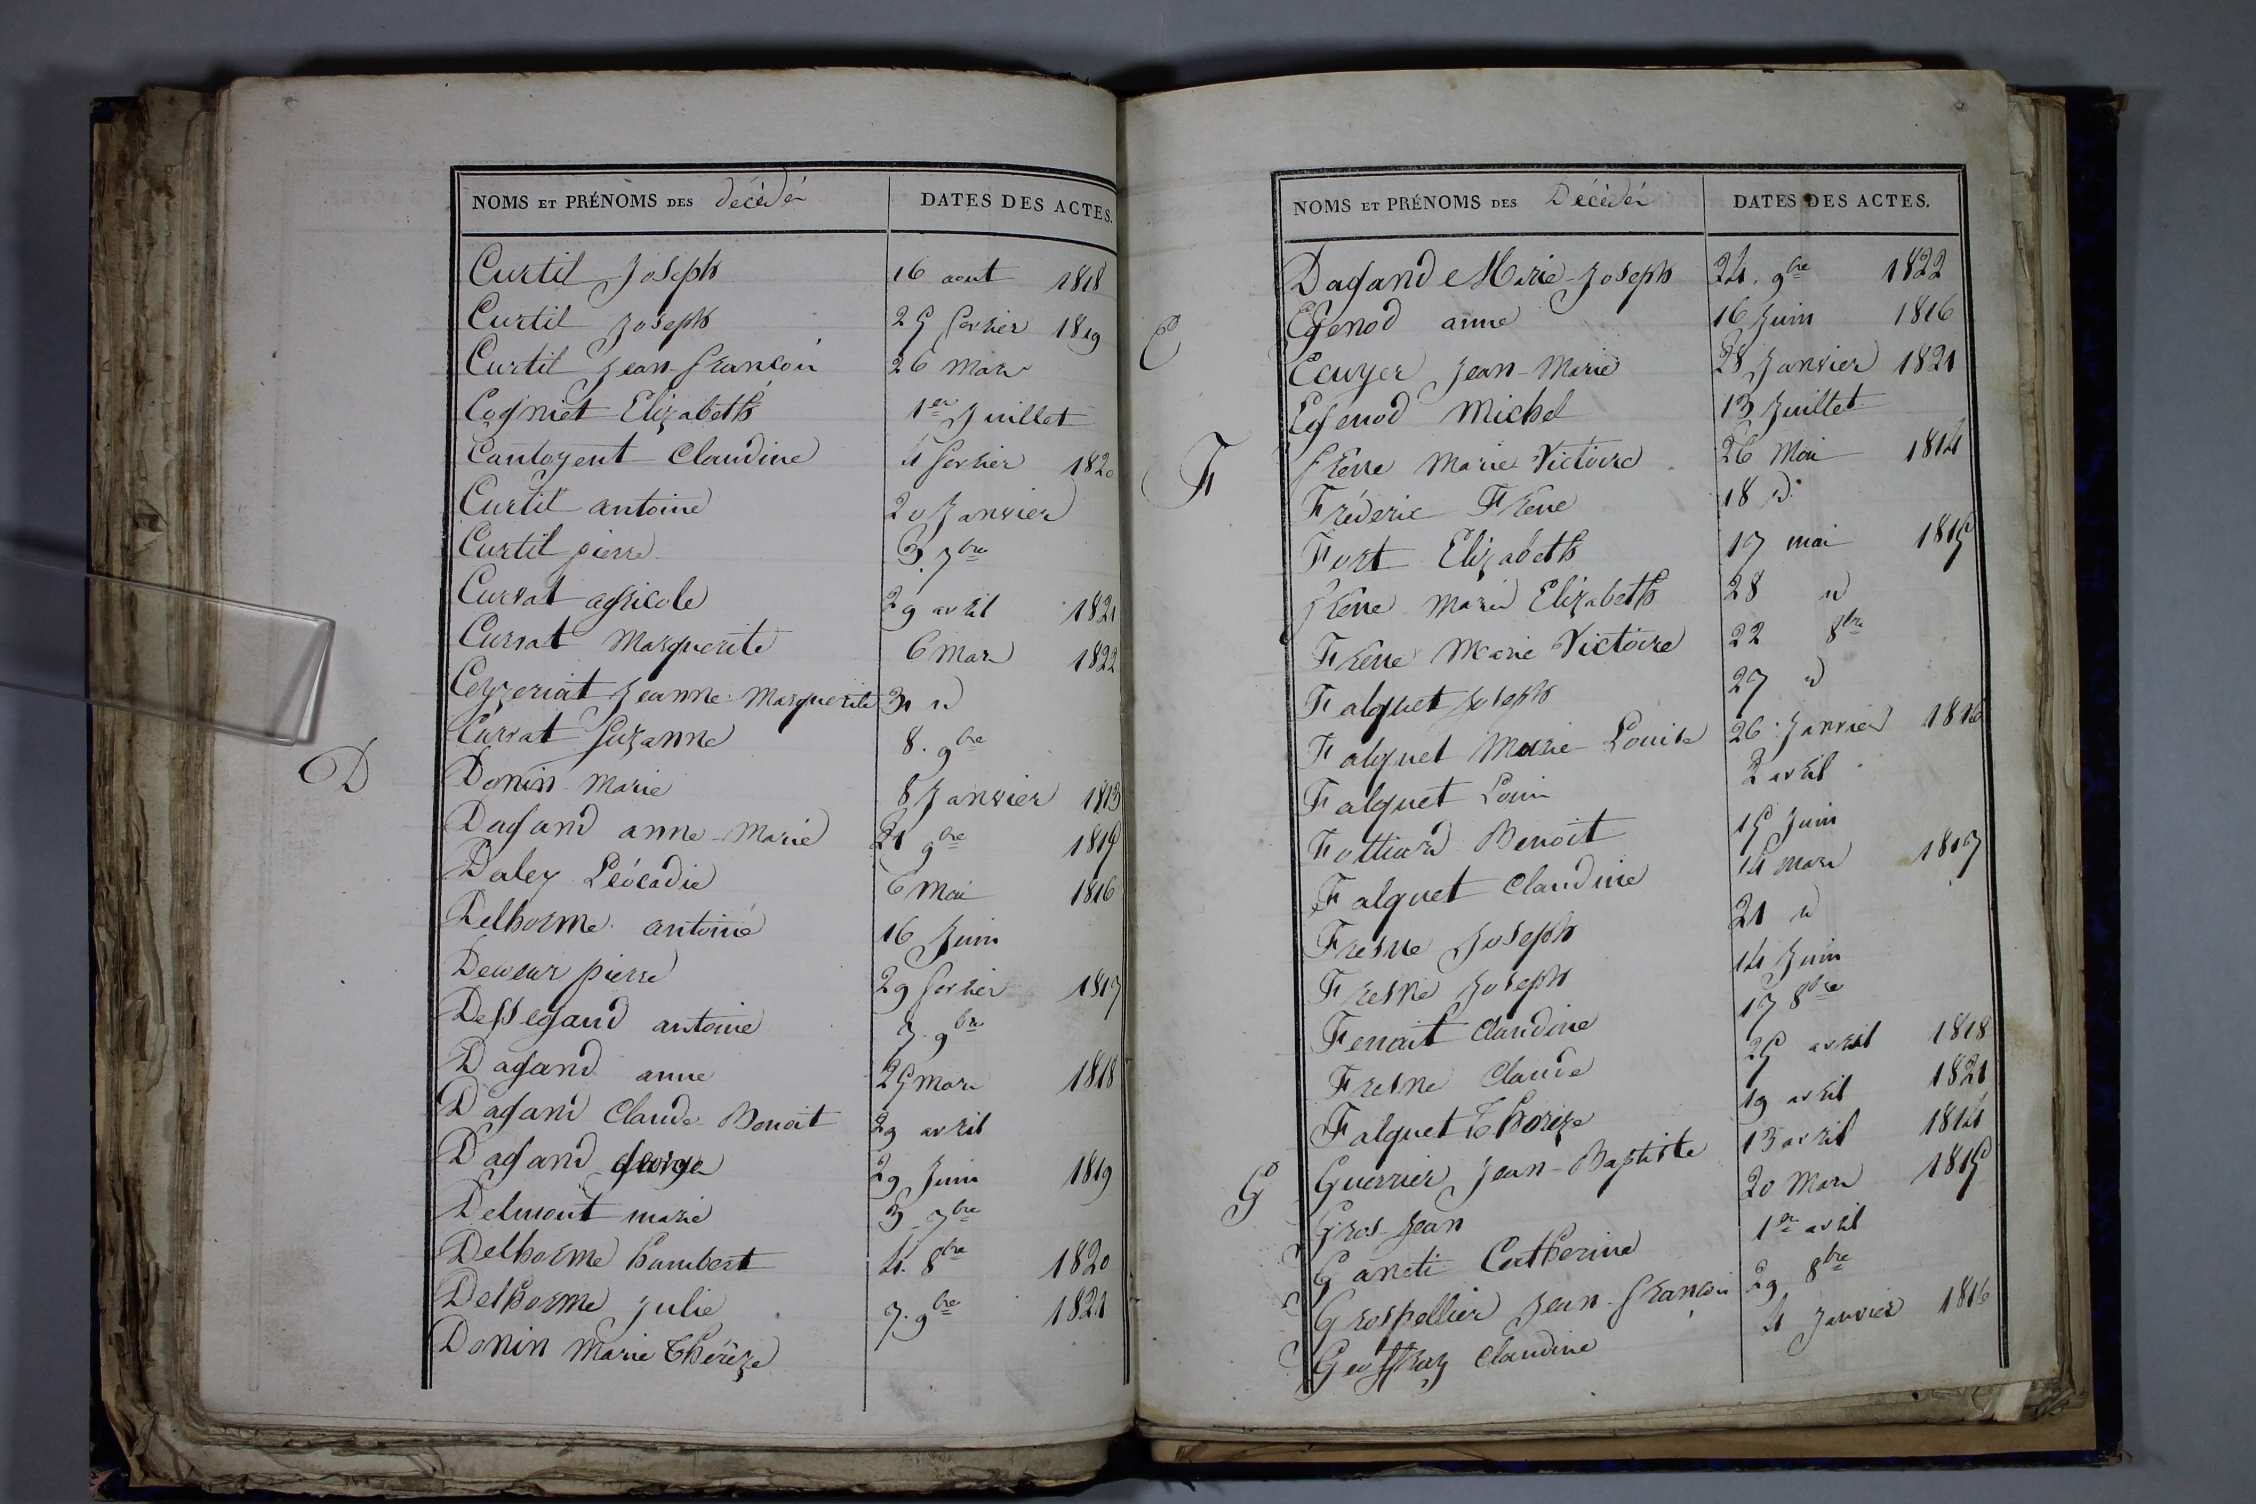 NOMS ET PRÉNOMS DES décédés DATES DES ACTES.
Curtil Joseph 16 aout 1818
Curtil Joseph 25 fevrier 1819
Curtil Jean-françois 26 mars
Cogniet Elizabeth 1er Juillet
Cantoyent Claudine 4 fevrier 1820
Curtil antoine 20 Janvier
Curtil pierre 3. 7bre
Currat agricole 29 avril 1821
Currat Marguerite 6 mars 1822
Ceyzeriat Jeanne Marguerite 31 d
Currat Suzanne 8. 9bre
D Donin Marie 8 Janvier 1813
Dagand anne-Marie 21 9bre 1815
Daley Léocadie 6 Mai 1816
Delhorme antoine 16 Juin
Deweur pierre 29 fevrier 1817
Dessegaud antoine 7. 9bre
Dagand anne 25 mars 1818
Dagand Claude-Benoit 29 avril
Dagand george 29 Juin 1819
Delmont marie 3 7bre
Delhorme humbert 4. 8bre 1820
Delhorme Julie 7. 9bre 1821
Donin Marie Thérèze
NOMS ET PRÉNOMS DES Décédés DATES DES ACTES.
Dagand Marie-Joseph 24. 9bre 1822
E Egenod anne 16 Juin 1816
Ecuyer Jean-Marie 28 Janvier 1821
Egenod Michel 13 Juillet
F frêne Marie Victoire 26 Mai 1814
Fréderic Frêne 18 d°
Fort Elizabeth 17 mai 1815
frêne Marie Elizabeth 28 d
Frêne Marie Victoire 22 8bre
Falquet Joseph 27 d
Falquet Marie-Louise 26 Janvier 1816
Falquet Louis 2 avril
Fottiard Benoit 15 Juin
Falquet Claudine 14 mars 1817
Fresne Joseph 21 d
Fresne Joseph 14 Juin
Fenait Claudine 17 8bre
Fresne Claude 25 avril 1818
Falquet Thérèze 19 avril 1821
G Guerrier Jean-Baptiste 13 avril 1814
Gros Jean 20 Mars 1815
Ganeti Catherine 1er avril
Grospellier Jean-françois 29 8bre
Geoffray Claudine 4 Janvier 1816